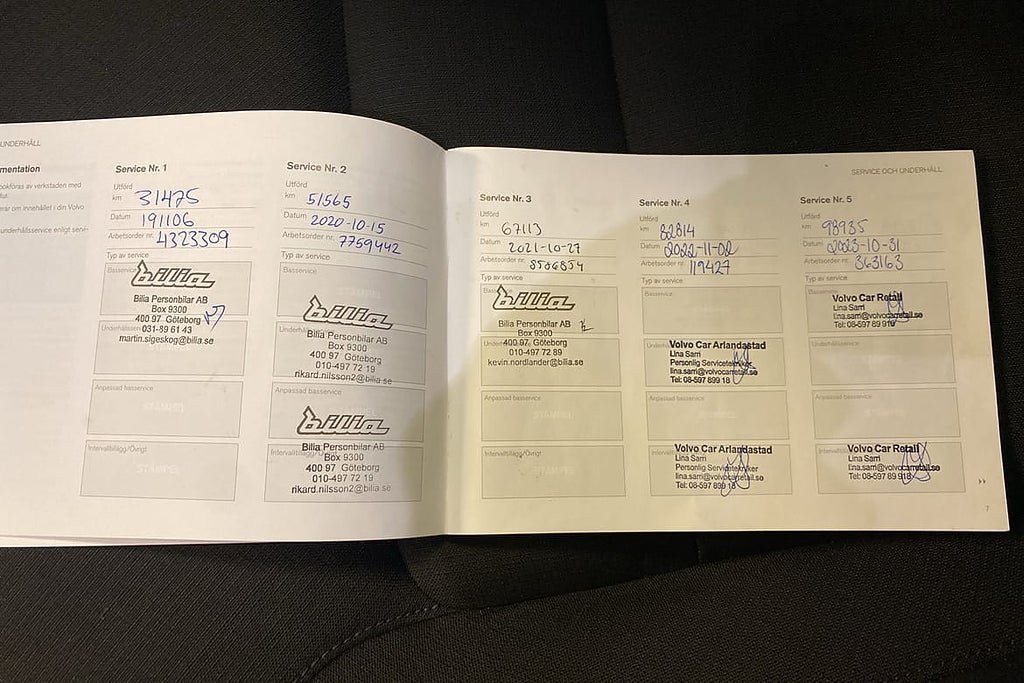 UNDERHÅLL
mentation
bokföras av verkstaden med
erar om innehållet i din Volvo
underhållsservice enligt servi-
Service Nr. 1
Utförd
km 31475
Datum 191106
Arbetsorder nr. 4323309
Typ av service
Basservice
bilia
Bilia Personbilar AB
Box 9300
400 97 Göteborg
031-89 61 43
martin.sigeskog@bilia.se
Anpassad basservice
STÄMPEL
Intervalltillägg/Övrigt
STÄMPEL
Service Nr. 2
Utförd
km 51565
Datum 2020-10-15
Arbetsorder nr. 7759442
Typ av service
Basservice
STÄMPEL
bilia
Bilia Personbilar AB
Box 9300
400 97 Göteborg
010-497 72 19
rikard.nilsson2@bilia.se
Anpassad basservice
bilia
Bilia Personbilar AB
Box 9300
400 97 Göteborg
010-497 72 19
rikard.nilsson2@bilia.se
Service Nr. 3
Utförd
km 67113
Datum 2021-10-27
Arbetsorder nr.
Typ av service
bilia
Bilia Personbilar AB
Box 9300
400 97 Göteborg
010-497 72 89
kevin.nordlander@bilia.se
Anpassad basservice
STÄMPEL
Intervalltillägg/Övrigt
SERVICE OCH UNDERHÅLL
Service Nr. 4
Utförd
km 82814
Datum 2022-11-02
Arbetsorder nr. 119427
Typ av service
Basservice
Volvo Car Arlandastad
Lina Sarri
Personlig Servicetekniker
lina.sarri@volvocarretail.se
Tel: 08-597 899 18
Anpassad basservice
Volvo Car Arlandastad
Lina Sarri
Personlig Servicetekniker
lina.sarri@volvocarretail.se
Tel: 08-597 899 18
Service Nr. 5
Utförd
km 98935
Datum 2023-10-31
Arbetsorder nr. 363163
Typ av service
Basservice
Volvo Car Retail
Lina Sarri
lina.sarri@volvocarretail.se
Tel: 08-597 89 918
Underhållsservice
Anpassad basservice
STÄMPEL
Volvo Car Retail
Lina Sarri
lina.sarri@volvocarretail.se
Tel: 08-597 89 918
7